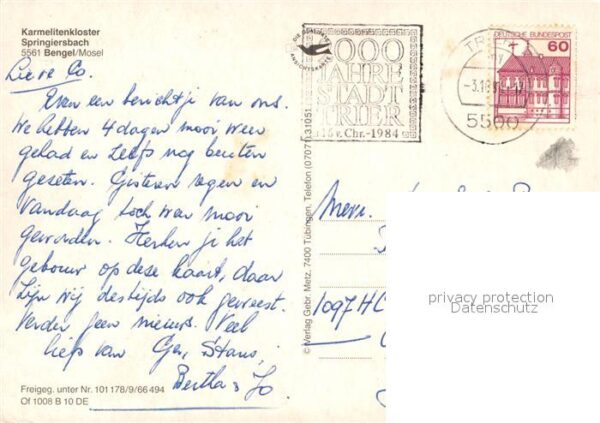 Karmelitenkloster
Springiersbach
5561 Bengel/Mosel
Lieve Co.
Even een berichtje van ons.
We hebben 4 dagen mooi weer
gehad en zelfs nog buiten
gezeten. Gisteren regen en
vandaag toch weer mooi
geworden. Herken je het
gebouw op deze kaart, daar
zijn wij destijds ook geweest.
Verder geen nieuws. Veel
liefs van Ger, Staus,
Bertha & Jo
Freigeg. unter Nr. 101 178/9/66 494
Of 1008 B 10 DE
© Verlag Gebr. Metz, 7400 Tübingen, Telefon (07071) 31051
2000
JAHRE
STADT
TRIER
v. Chr.-1984
5500
DEUTSCHE BUNDESPOST
60
Mevr.
1097 HC
privacy protection
Datenschutz